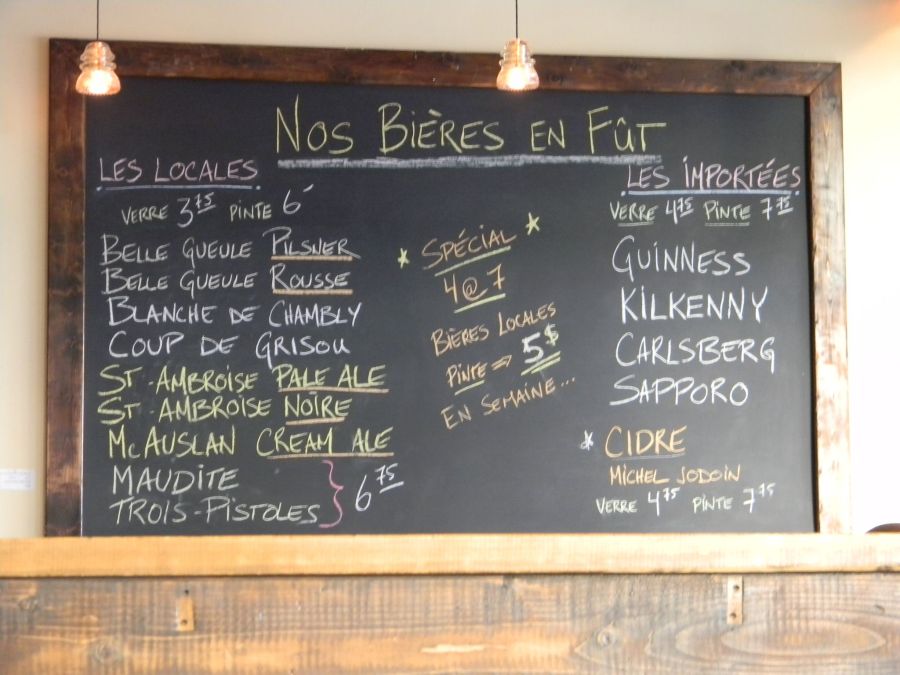 NOS BIÈRES EN FÛT
LES LOCALES
VERRE 3.75 PINTE 6
BELLE GUEULE PILSNER
BELLE GUEULE ROUSSE
BLANCHE DE CHAMBLY
COUP DE GRISOU
ST-AMBROISE PALE ALE
ST-AMBROISE NOIRE
MCAUSLAN CREAM ALE
MAUDITE
TROIS-PISTOLES
6 75
* SPÉCIAL *
4@7
BIÈRES LOCALES
PINTE ⇒ 5$
EN SEMAINE...
LES IMPORTÉES
VERRE 4 75 PINTE 7 75
GUINNESS
KILKENNY
CARLSBERG
SAPPORO
* CIDRE
MICHEL JODOIN
VERRE 4 75 PINTE 7 75